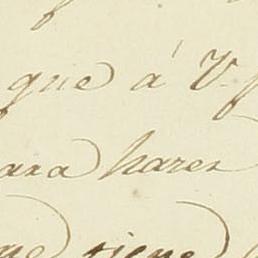 que á V.
para hazer
que tiene